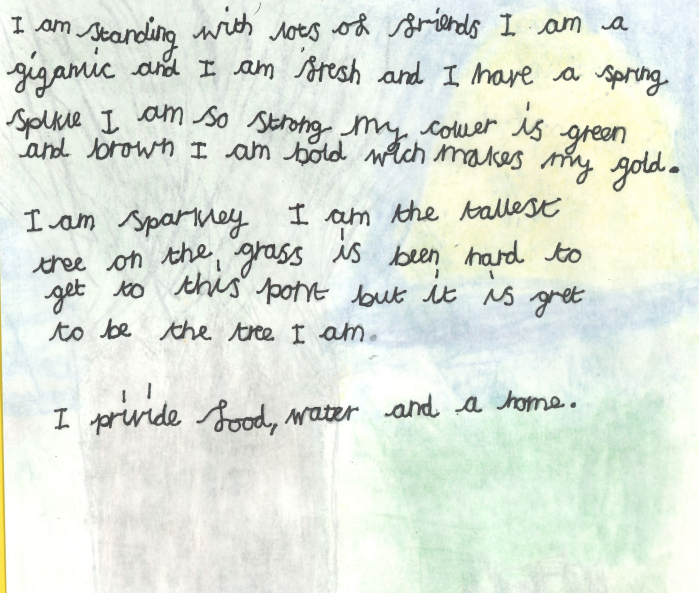 I am standing with lots of friends I am a
gigamic and I am fresh and I have a spring
splkle I am so strong my colwer is green
and brown I am bold wich makes my gold.
I am sparkley I am the tallest
tree on the grass is been hard to
get to this pont but it is gret
to be the tree I am.
I privide food, water and a home.